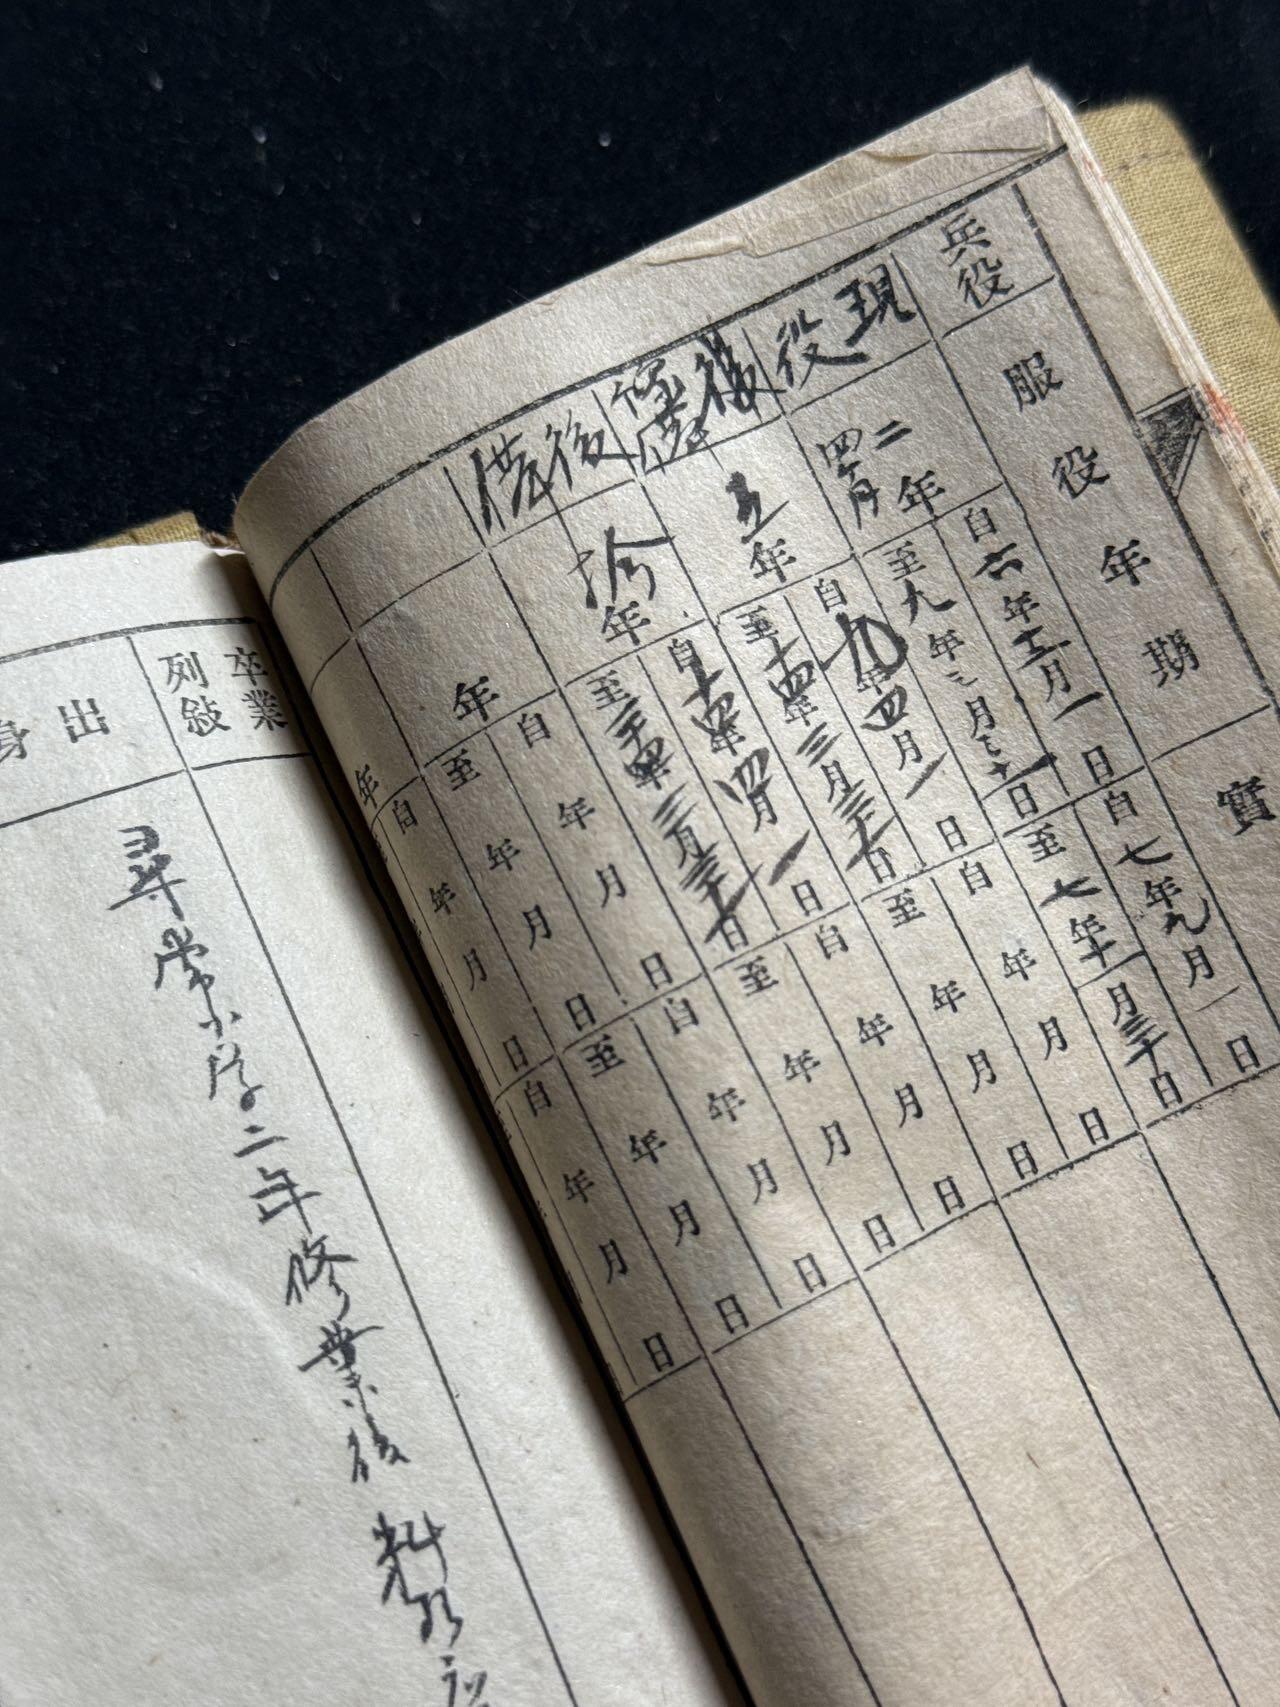 兵役
服役年期
實
現役
二年四ヶ月
自六年十二月一日
至九年三月三十一日
自七年九月 日
至七年十 月三十日
後備
五年
自九年四月一日
至十四年三月三十一日
自 年 月 日
至 年 月 日
後備
拾年
自十四年四月一日
至二十四年三月三十一日
自 年 月 日
至 年 月 日
年
自 年 月 日
至 年 月 日
自 年 月 日
至 年 月 日
年
自 年 月 日
自 年 月 日
卒業
列敍
出身
尋常小学二年修業後